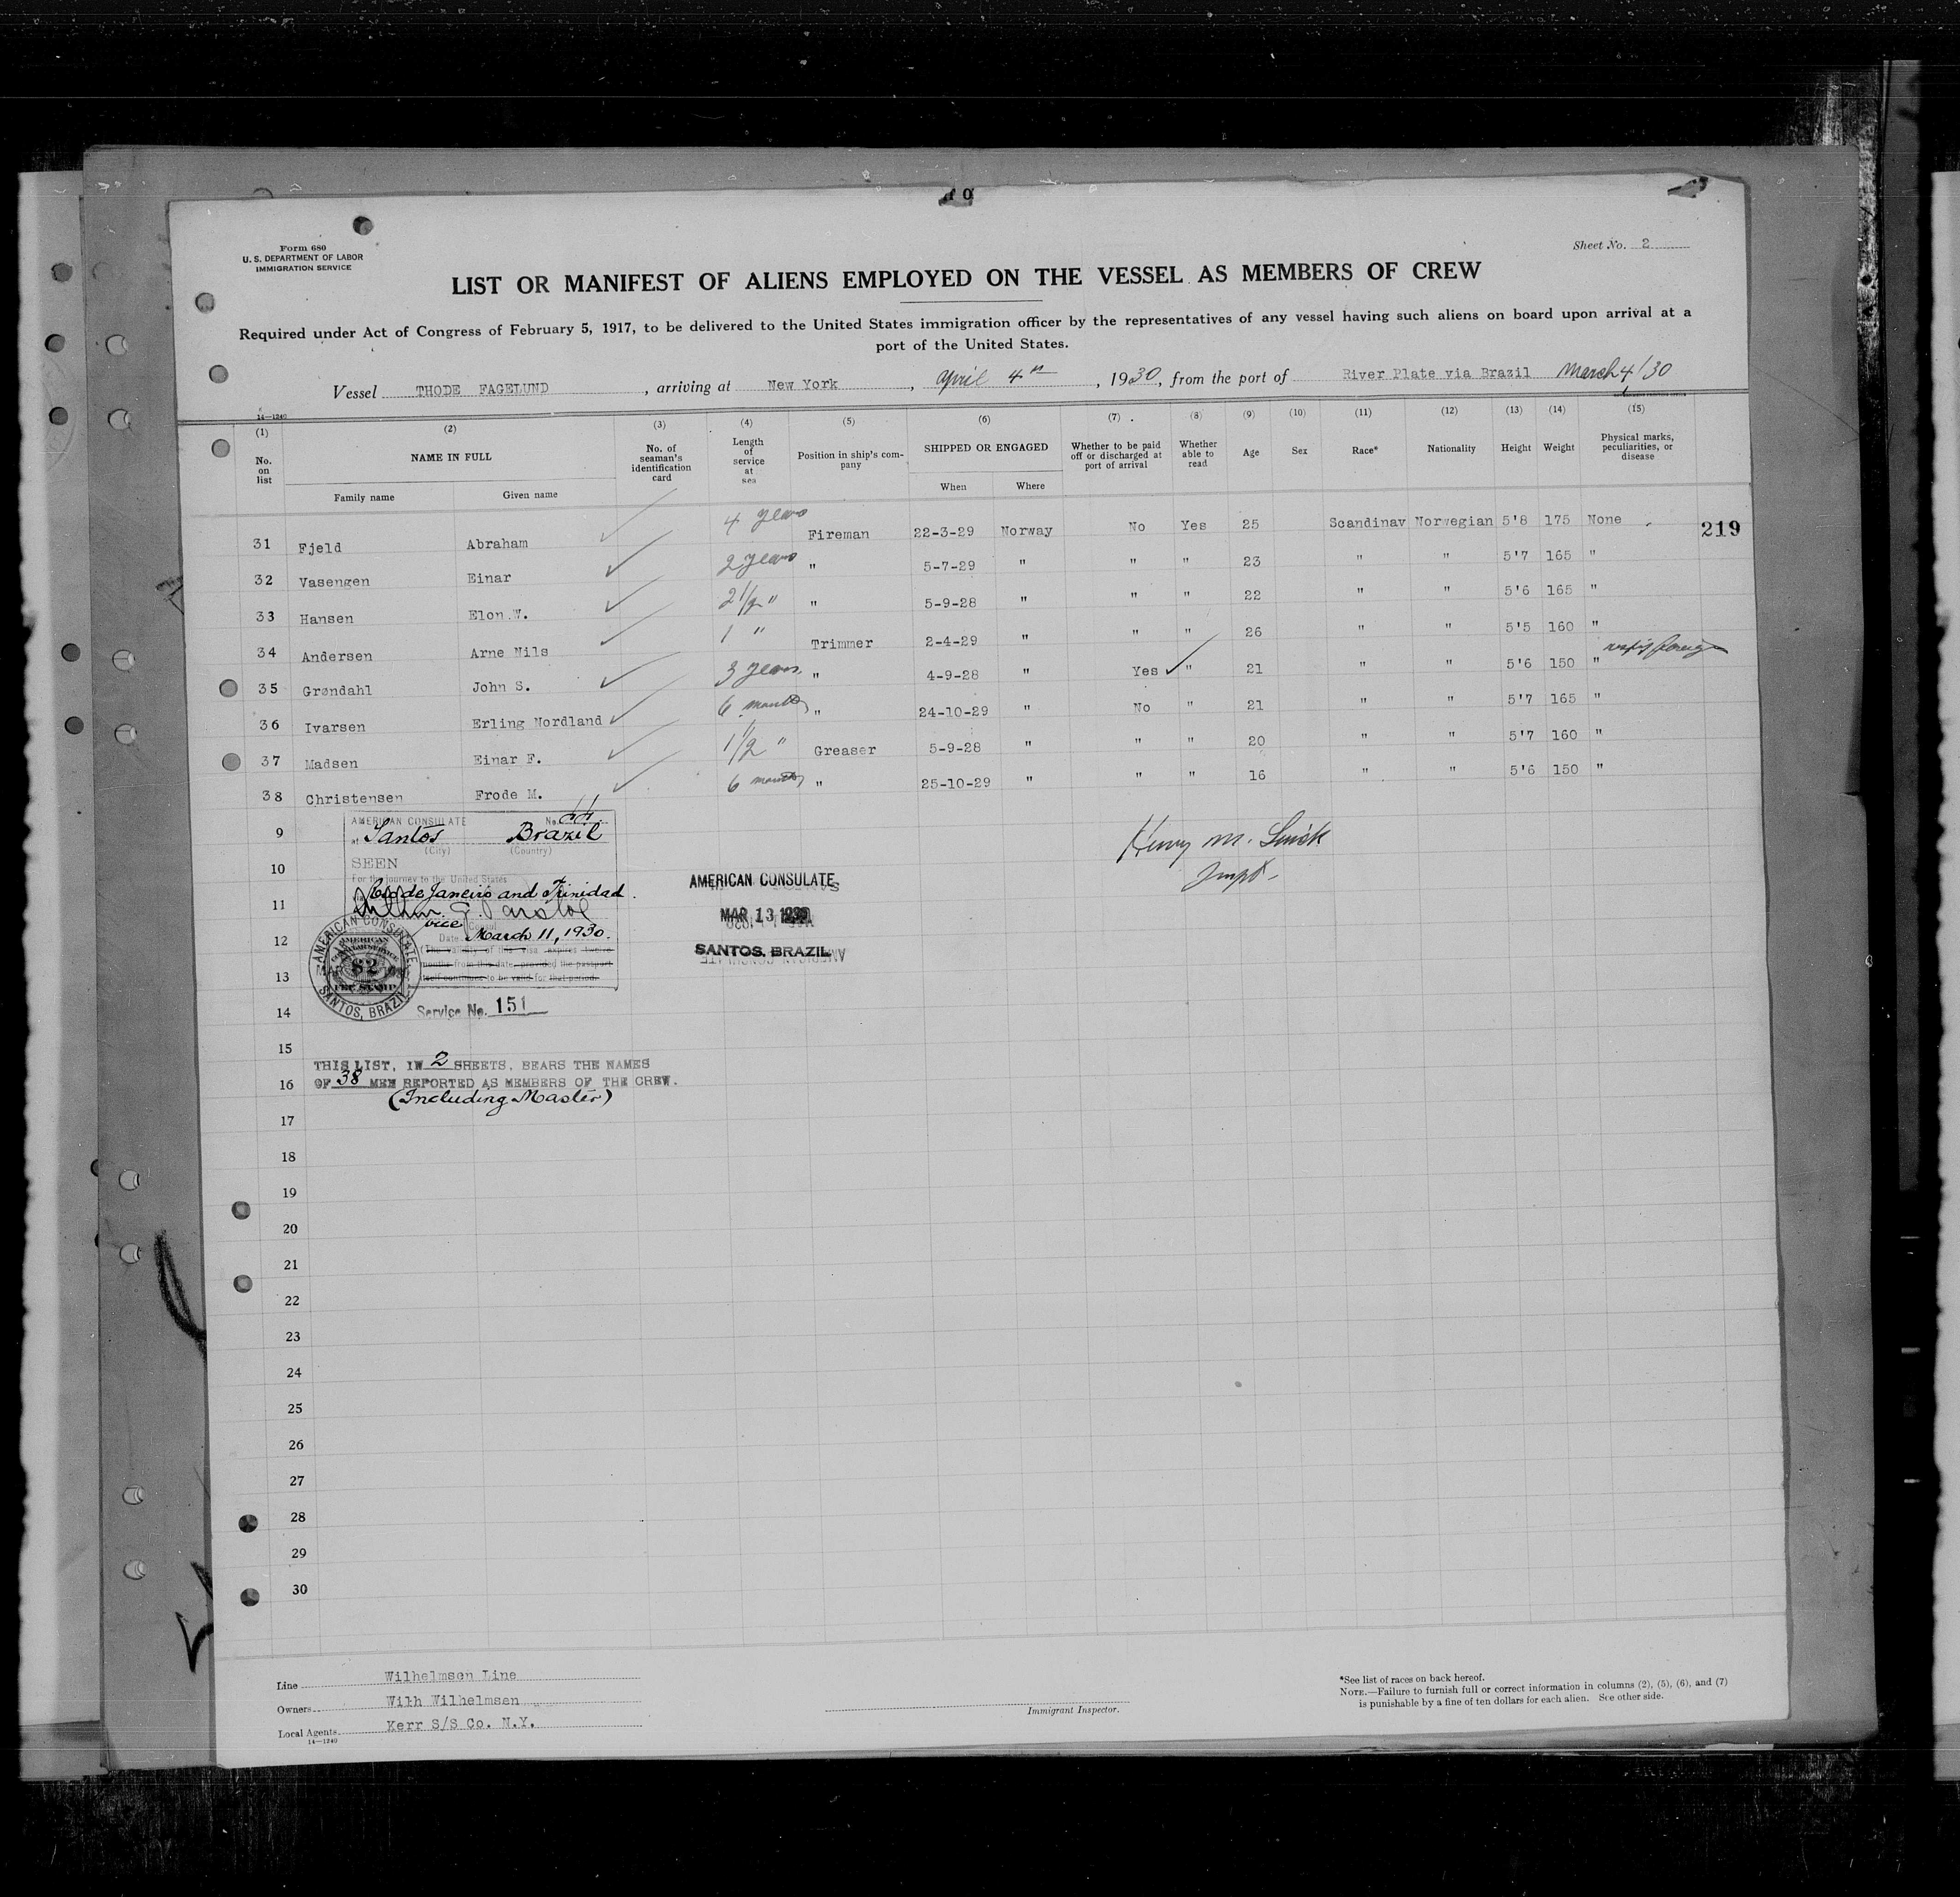 Form 680
U. S. DEPARTMENT OF LABOR
IMMIGRATION SERVICE
Sheet No. 2
LIST OR MANIFEST OF ALIENS EMPLOYED ON THE VESSEL AS MEMBERS OF CREW
Required under Act of Congress of February 5, 1917, to be delivered to the United States immigration officer by the representatives of any vessel having such aliens on board upon arrival at a
port of the United States.
Vessel THODE FAGELUND, arriving at New York, April 4th, 1930, from the port of River Plate via Brazil March 4/30
14—1240
(1) (2) (3) (4) (5) (6) (7) (8) (9) (10) (11) (12) (13) (14) (15)
No. on list NAME IN FULL No. of seaman's identification card Length of service at sea Position in ship's company SHIPPED OR ENGAGED Whether to be paid off or discharged at port of arrival Whether able to read Age Sex Race* Nationality Height Weight Physical marks, peculiarities, or disease
Family name Given name When Where
31 Fjeld Abraham 4 years Fireman 22-3-29 Norway No Yes 25 Scandinav Norwegian 5'8 175 None 219
32 Vasengen Einar 2 years " 5-7-29 " " " 23 " " 5'7 165 "
33 Hansen Elon W. 2 1/2 " " 5-9-28 " " " 22 " " 5'6 165 "
34 Andersen Arne Nils 1 " Trimmer 2-4-29 " " " 26 " " 5'5 160 "
35 Grøndahl John S. 3 years " 4-9-28 " Yes " 21 " " 5'6 150 "
36 Ivarsen Erling Nordland 6 months " 24-10-29 " No " 21 " " 5'7 165 "
37 Madsen Einar F. 1 1/2 " Greaser 5-9-28 " " " 20 " " 5'7 160 "
38 Christensen Frode M. 6 months " 25-10-29 " " " 16 " " 5'6 150 "
AMERICAN CONSULATE No.
at Santos Brazil
(City) (Country)
SEEN
For the journey to the United States
Rio de Janeiro and Trinidad.
vice
Date March 11, 1930.
(The validity of this visa expires twelve
months from this date, provided the passport
itself continues to be valid for that period.
AMERICAN CONSULATE
SANTOS, BRAZIL
AMERICAN
$2
FEE STAMP
Service No. 151
AMERICAN CONSULATE
MAR 13 1930
SANTOS, BRAZIL
Henry M.
Inspt.
THIS LIST, IN 2 SHEETS, BEARS THE NAMES
OF 38 MEN REPORTED AS MEMBERS OF THE CREW.
(Including Master)
9
10
11
12
13
14
15
16
17
18
19
20
21
22
23
24
25
26
27
28
29
30
Line Wilhelmsen Line
Owners Wilh Wilhelmsen
Local Agents Kerr S/S Co. N.Y.
14—1240
Immigrant Inspector.
*See list of races on back hereof.
NOTE.—Failure to furnish full or correct information in columns (2), (5), (6), and (7)
is punishable by a fine of ten dollars for each alien. See other side.